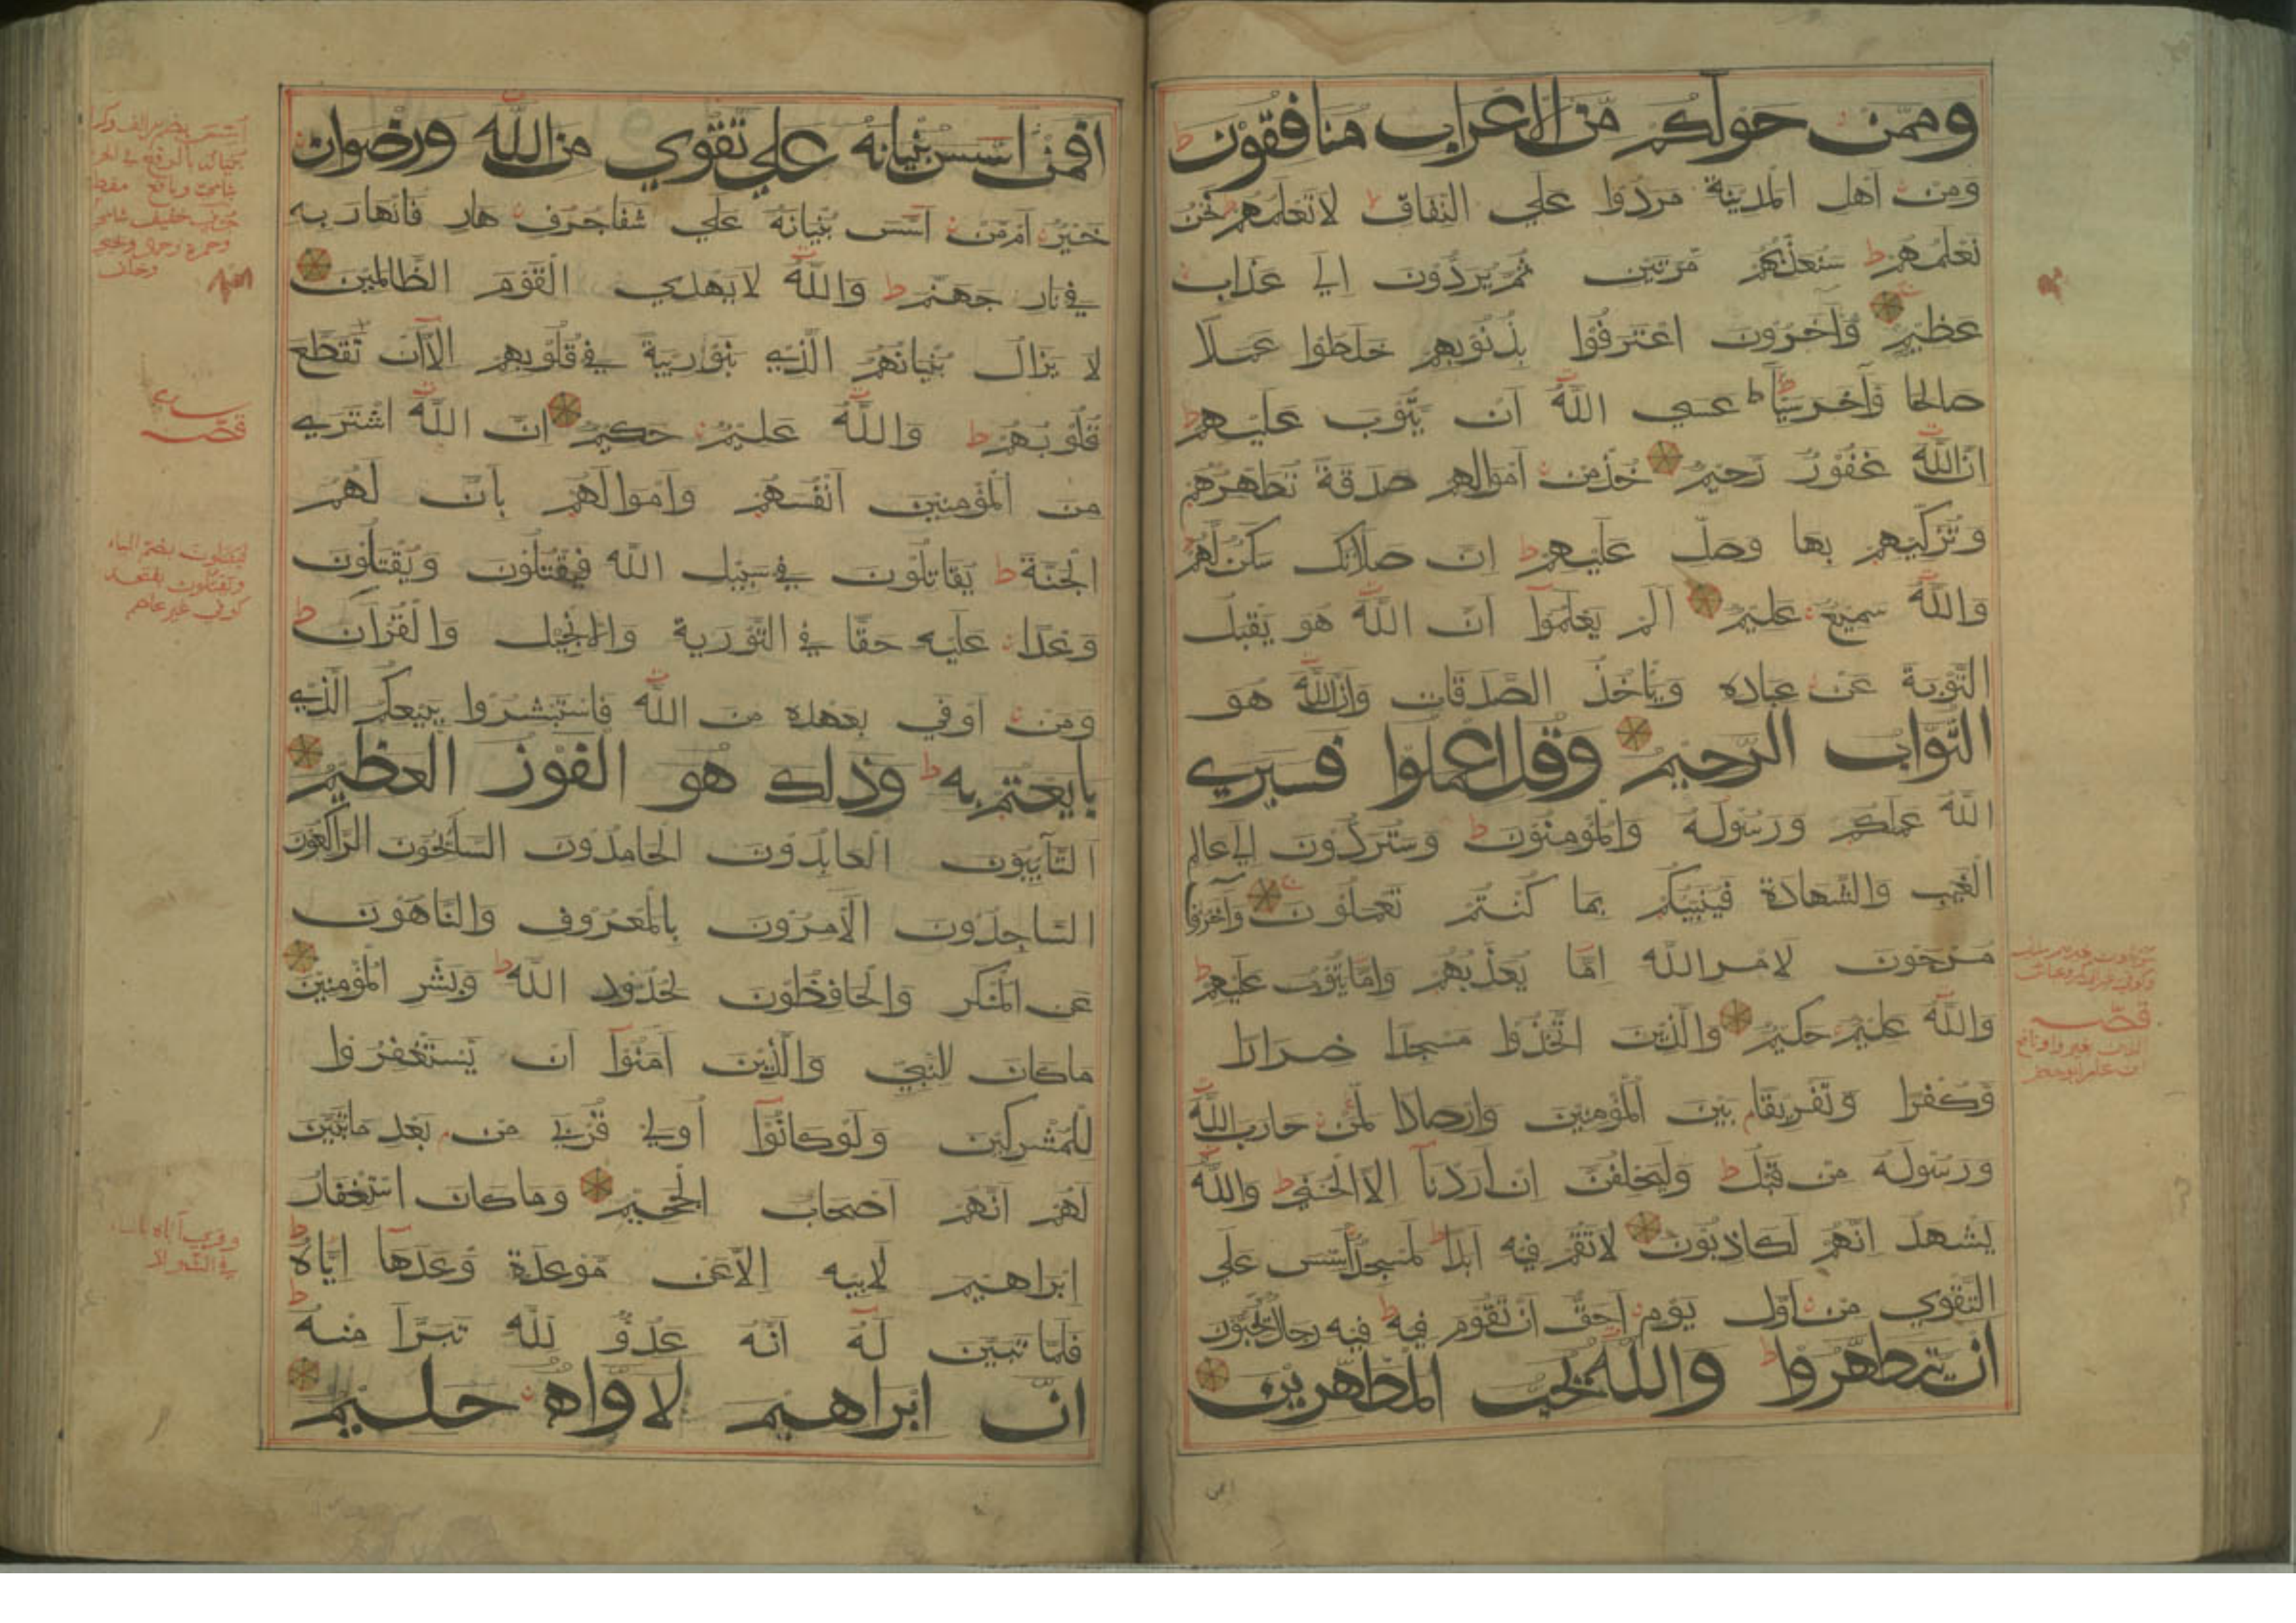 وممّن حولكم مّن الاعراب منافقون ط
ومن اهل المدينة مردوا علي النفاق ط لا تعلمهم نحن
نعلمهم ط سنعذّبهم مّرتين ثم يردّون الي عذاب
عظيم وآخرون اعترفوا بذنوبهم خلطوا عملا
صالحا وّآخر سيّأ ط عسي الله ان يّتوب عليهم ط
انّ الله غفور رّحيم خذ من اموالهم صدقة تطهّرهم
وتزكّيهم بها وصلّ عليهم ط انّ صلاتك سكن لّهم ط
والله سميع عليم الم يعلموا انّ الله هو يقبل
التّوبة عن عباده ويأخذ الصّدقات وانّ الله هو
التّوّاب الرّحيم وقل اعملوا فسيري
الله عملكم ورسوله والمؤمنون ط وستردّون الي عالم
الغيب والشّهادة فينبّيكم بما كنتم تعملون وآخرون
مرجون لامر الله امّا يعذّبهم وامّا يتوب عليهم ط
والله عليم حكيم والّذين اتّخذوا مسجدا ضرارا
وّكفرا وّتفريقا بين المؤمنين وارصادا لّمن حارب الله
ورسوله من قبل ط وليحلفنّ ان اردنا الّا الحسني ط والله
يشهد انّهم لكاذبون لا تقم فيه ابدا ط لمسجد اسّس علي
التّقوي من اوّل يوم احقّ ان تقوم فيه ط فيه رجال يحبّون
ان يتطهّروا ط والله يحبّ المطّهرين
قصّه
افمن اسّس بنيانه علي تقوي من الله ورضوان
خير ام مّن اسّس بنيانه علي شفا جرف هار فانهار به
في نار جهنّم ط والله لا يهدي القوم الظّالمين
لا يزال بنيانهم الّذي بنوا ريبة في قلوبهم الّا ان تقطّع
قلوبهم ط والله عليم حكيم انّ الله اشتري
من المؤمنين انفسهم واموالهم بانّ لهم
الجنّة ط يقاتلون في سبيل الله فيقتلون ويقتلون
وعدا عليه حقّا في التّورية والانجيل والقرآن ط
ومن اوفي بعهده من الله فاستبشروا ببيعكم الّذي
بايعتم به ط وذلك هو الفوز العظيم
التّآيبون العابدون الحامدون السّآيحون الرّاكعون
السّاجدون الآمرون بالمعروف والنّاهون
عن المنكر والحافظون لحدود الله ط وبشّر المؤمنين
ما كان للنّبيّ والّذين آمنوا ان يّستغفروا
للمشركين ولو كانوا اولي قربي من بعد ما تبيّن
لهم انّهم اصحاب الجحيم وما كان استغفار
ابراهيم لابيه الّا عن موعدة وّعدها ايّاه ط
فلمّا تبيّن له انّه عدوّ لّلّه تبرّأ منه ط
انّ ابراهيم لاوّاه حليم
قصّه